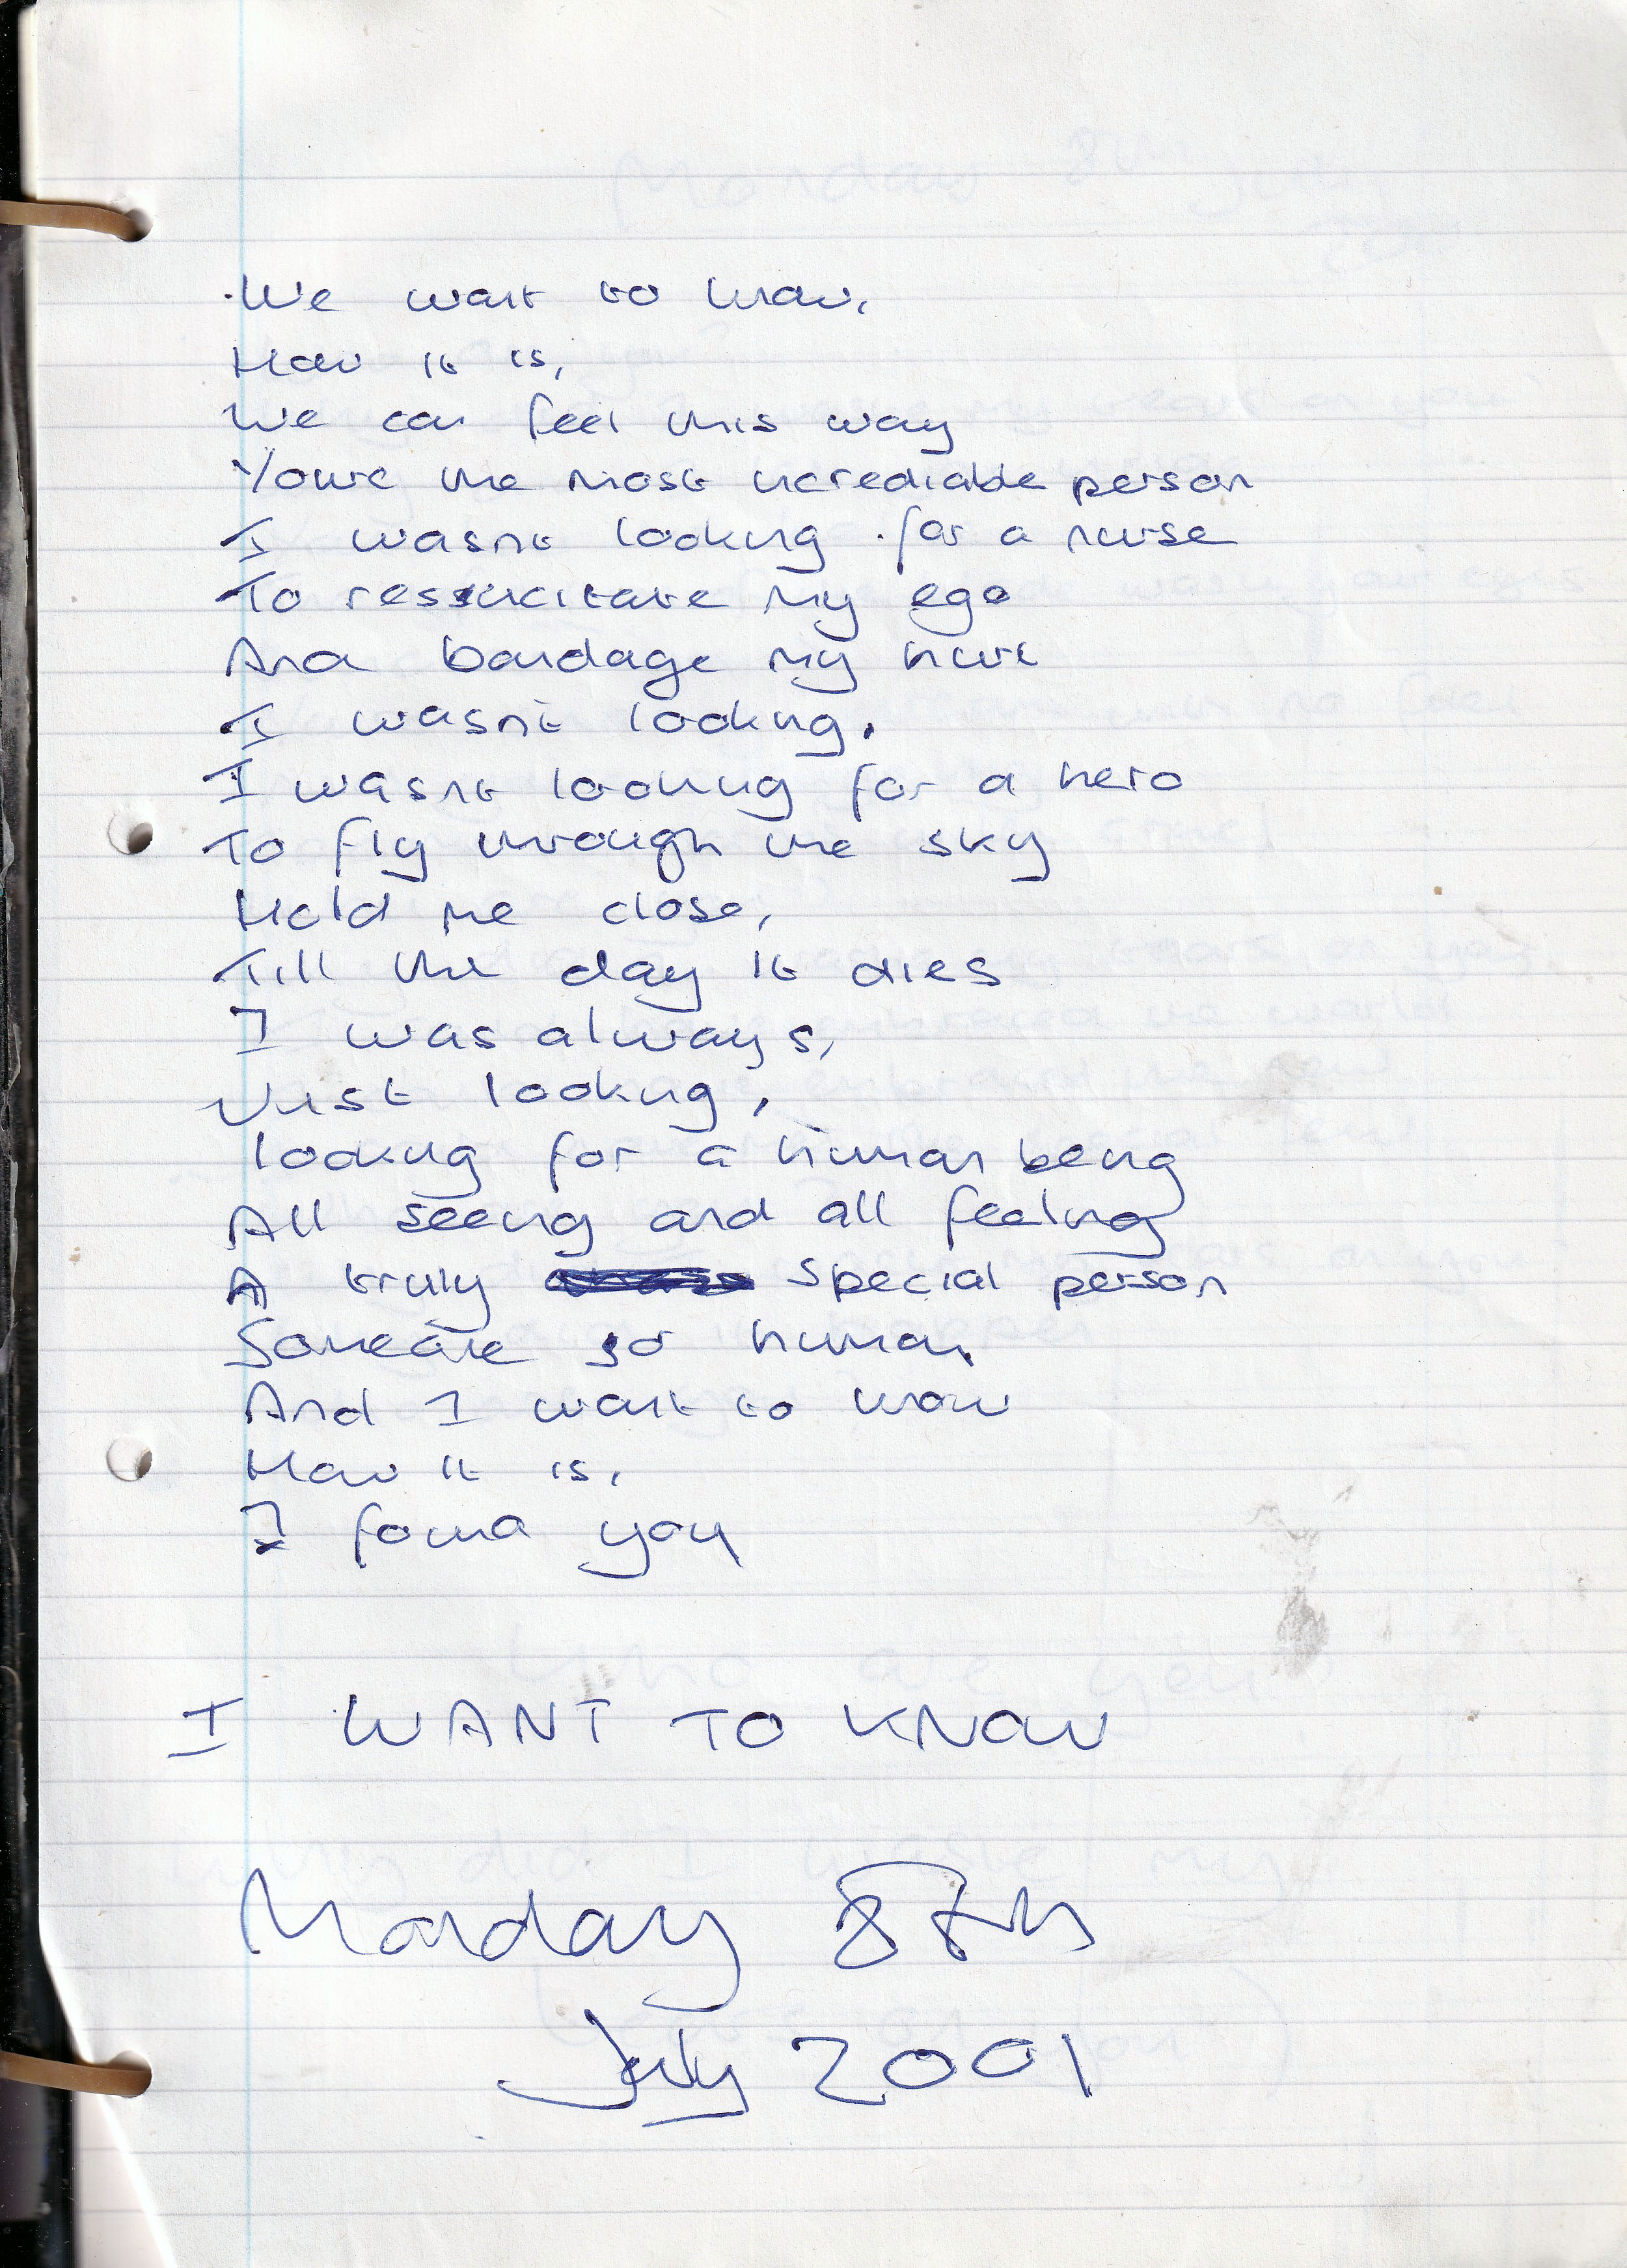 We want to know,
How it is,
We can feel this way
Youre the most increadiable person
I wasnt looking for a nurse
To ressucitate my ego
And bandage my hurt
I wasnt looking.
I wasnt looking for a hero
To fly through the sky
Hold me close,
Till the day it dies
I was always,
Just looking,
looking for a human being
All seeing and all feeling
A truly special person
Someone so human
And I want to know
How it is,
I found you
I WANT TO KNOW
Monday 8th
July 2001